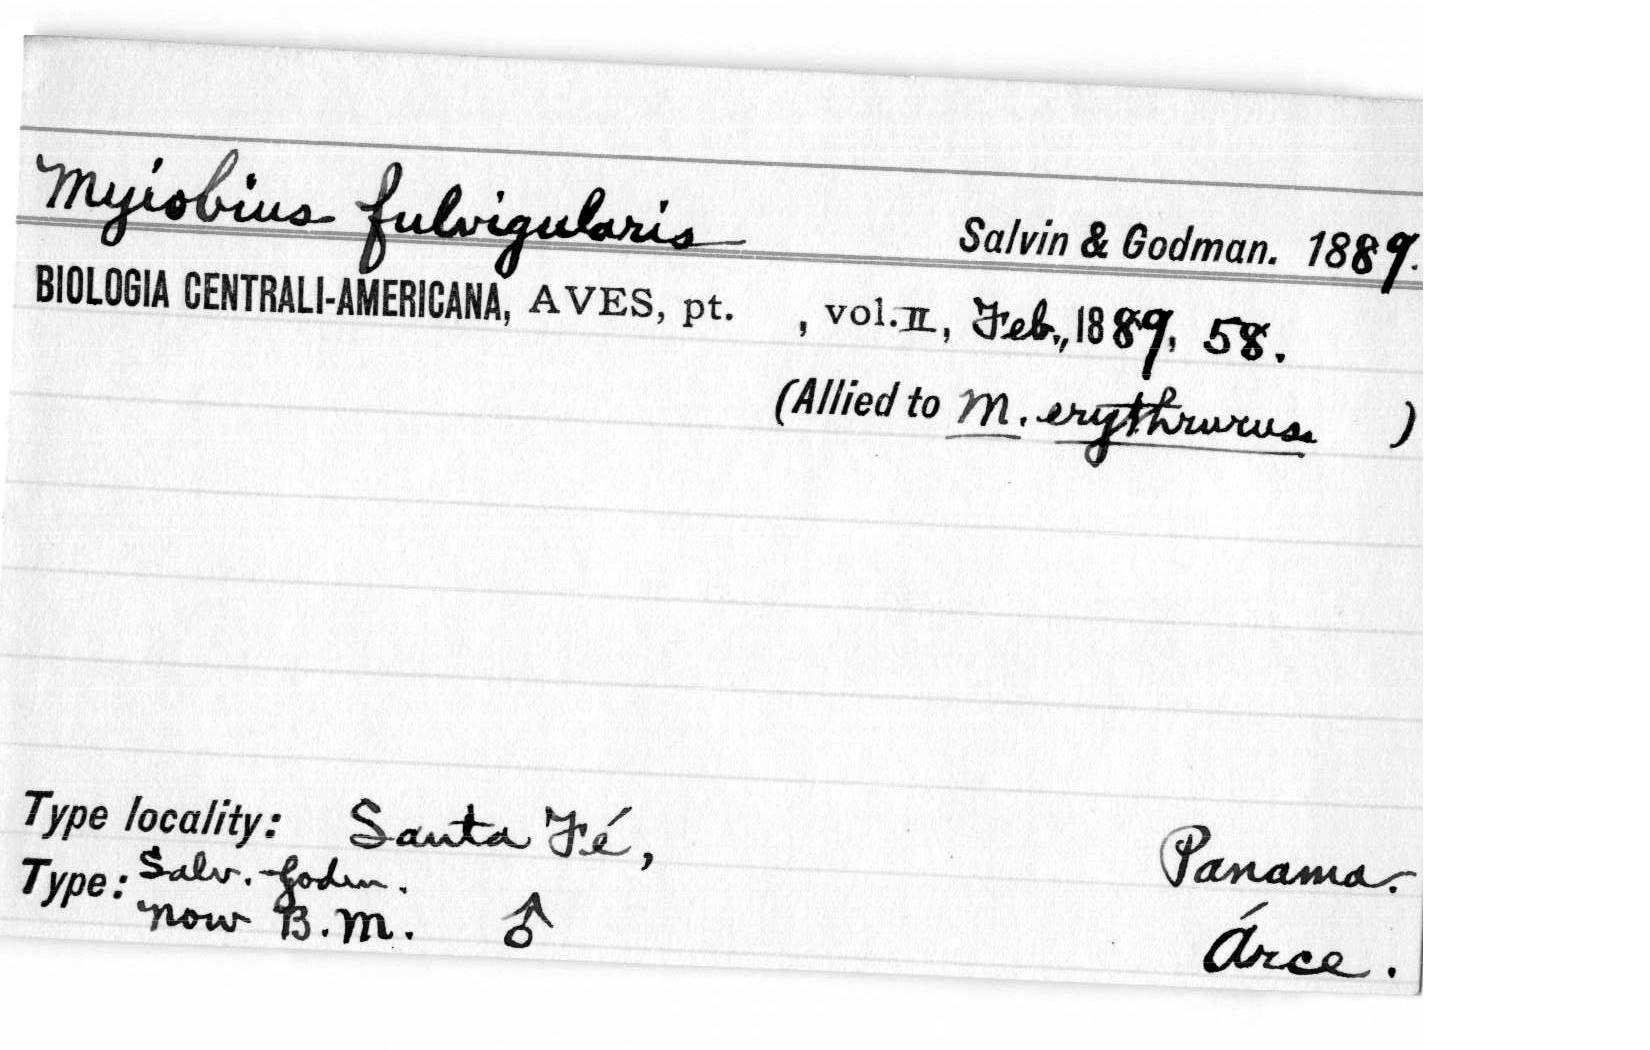 Myiobius fulvigularis Salvin & Godman. 1889.
BIOLOGIA CENTRALI-AMERICANA, AVES, pt. , vol. II, Feb., 1889, 58.
(Allied to M. erythrurus. )
Type locality: Santa Fé, Panama.
Type: Salv.-Godm.
now B.M. ♂ Árce.